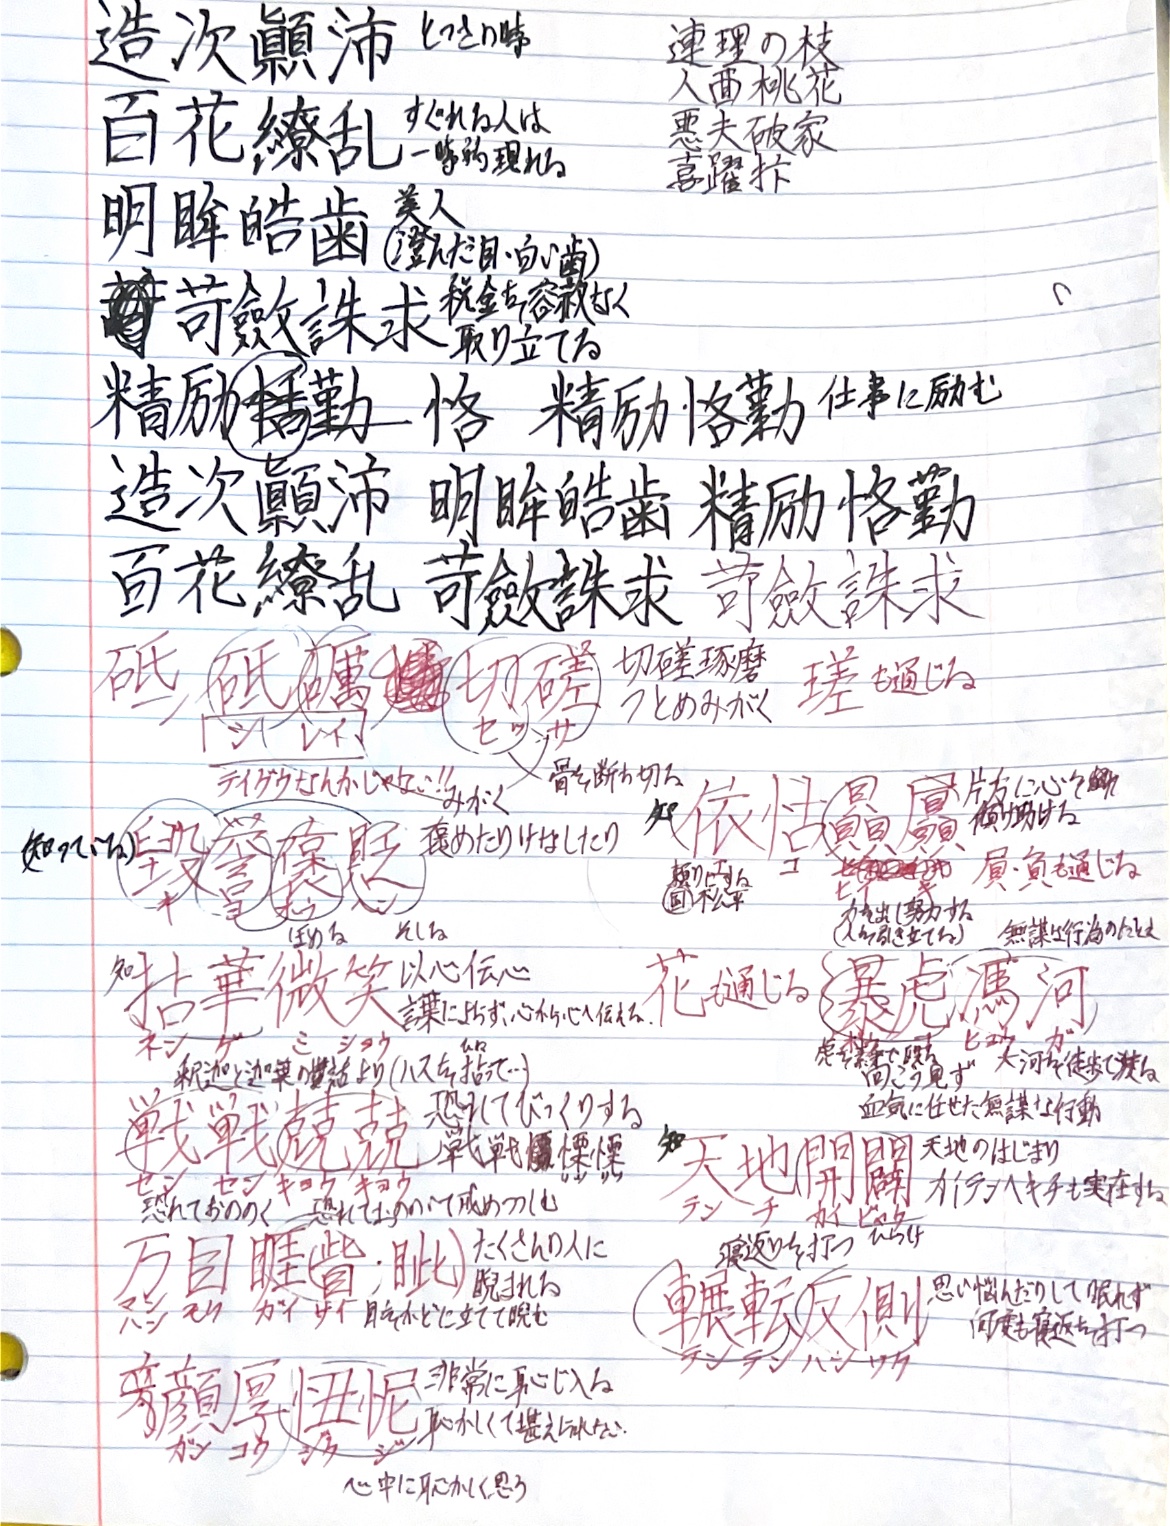 造次顚沛 とっさの時
連理の枝
人面桃花
悪夫破家
喜躍抃
百花繚乱 すぐれる人は
一時的現れる
明眸皓歯 美人
(澄んだ目・白い歯)
苛斂誅求 税金を容赦なく
取り立てる
精励 勤 恪 精励恪勤 仕事に励む
造次顚沛 明眸皓歯 精励恪勤
百花繚乱 苛斂誅求 苛斂誅求
砥 砥礪 切磋 切磋琢磨
つとめみがく
瑳も通じる
シ レイ セッサ
テイグウなんかじゃない!!
みがく
骨を断ち切る
(知っている) 毀誉褒貶 褒めたりけなしたり
キ ヨ ホウ ヘン
ほめる そしる
知 依怙贔屓 片方に心を
傾け助ける
コ ヒイ キ
員・負も通じる
頼りにする
松平
力を出し努力する
(人を引き立てる)
無謀な行為のたとえ
知 拈華微笑 以心伝心
言葉によらず、心から心へ伝える
花も通じる
ネン ゲ ミ ショウ
釈迦と迦葉の 話より(ハスを拈って…)
暴虎馮河
ヒョウ ガ
虎を素手で殴る
大河を徒歩で渡る
向こう見ず
血気に任せた無謀な行動
戦戦兢兢 恐れてびっくりする
戦戦慄慄
セン セン キョウ キョウ
恐れておののく 恐れておののいて戒めつつしむ
知 天地開闢 天地のはじまり
カイテンヘキチも実在する
テン チ カイ ビャク
ひらけ
万目睚眥;眦 たくさんの人に
睨まれる
マン モク ガイ サイ 目をかどに立てて睨む
バン
寝返りを打つ
輾転反側 思い悩んだりして眠れず
何度も寝返を打つ
テン テン ハン ソク
顔厚忸怩 非常に恥じ入る
恥かしくて堪えられない
ガン コウ ジク ジ
心中に恥かしく思う